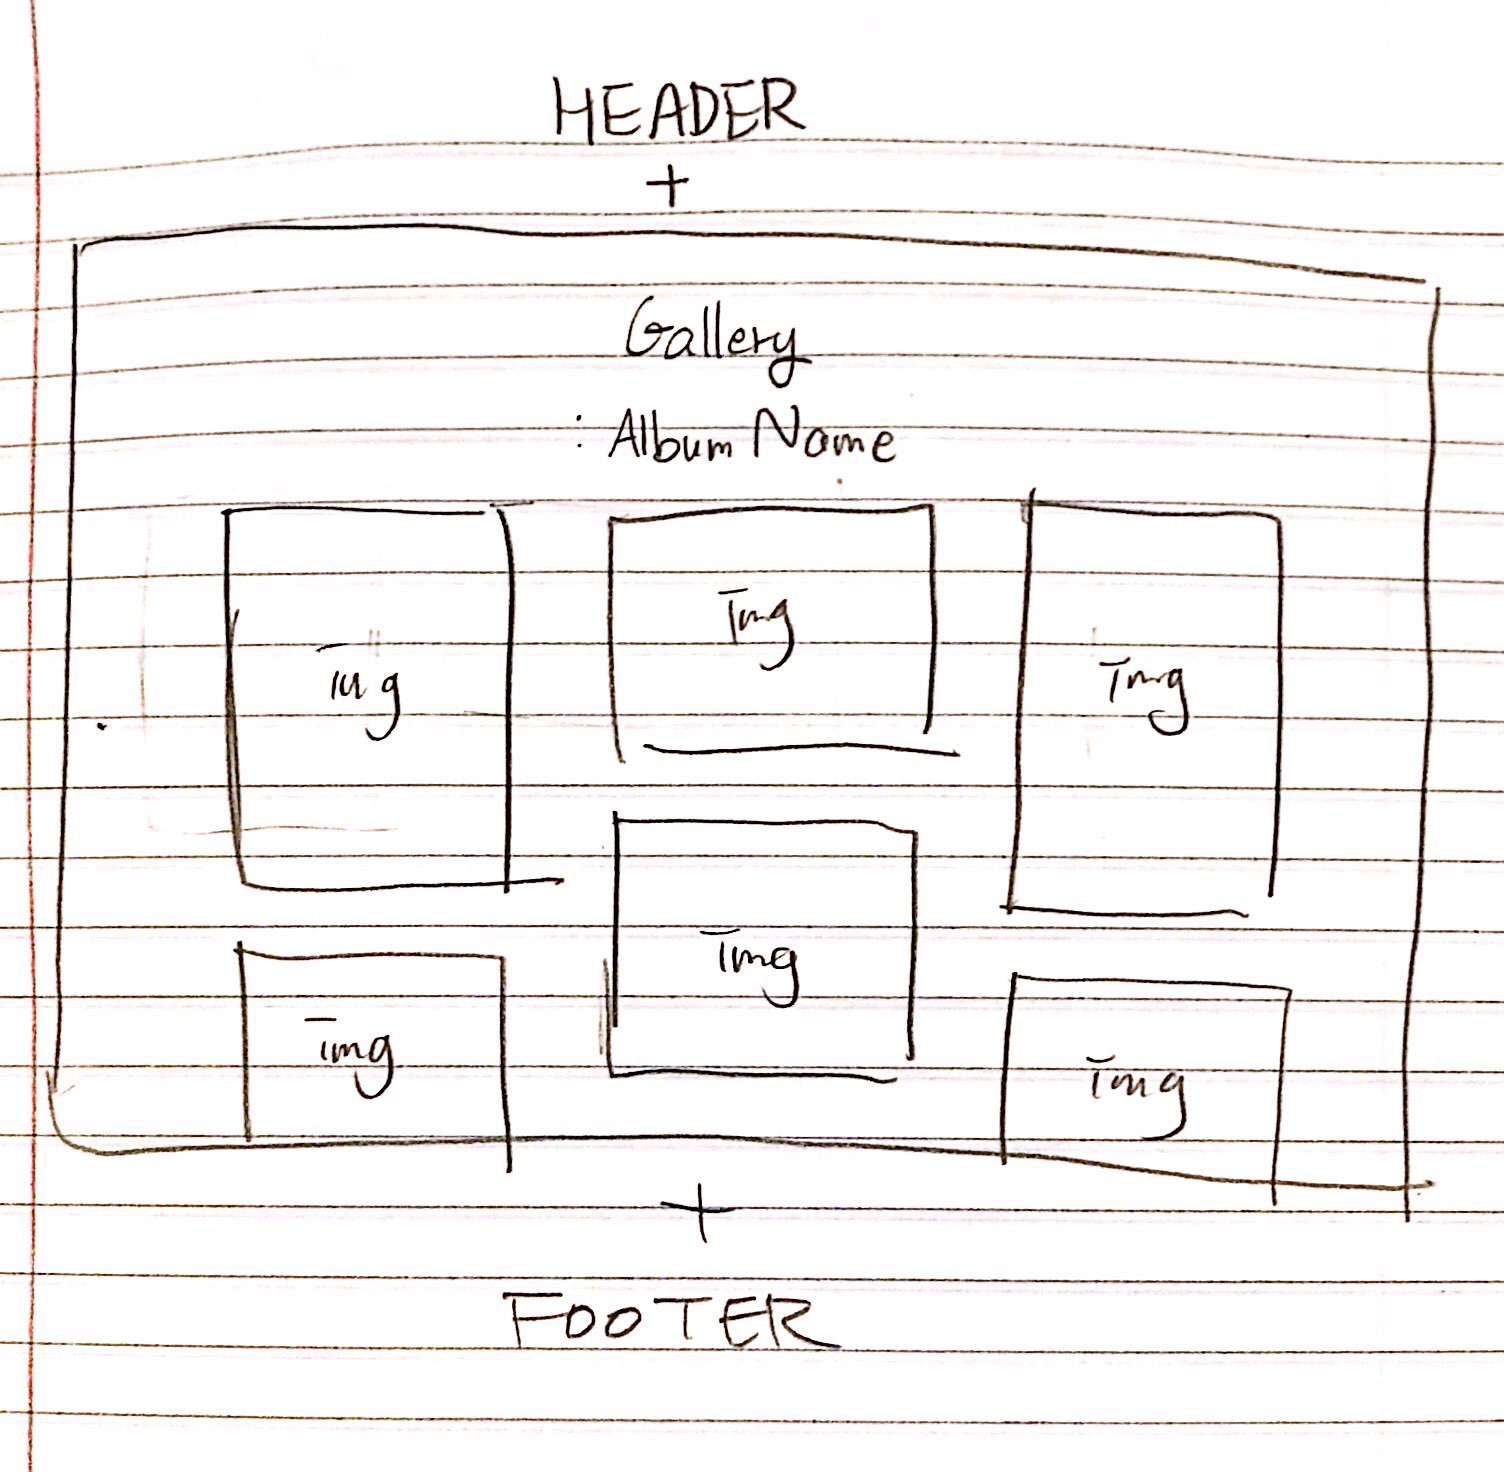 HEADER
+
Gallery
: Album Name
Img
Img
Img
Img
Img
Img
+
FOOTER